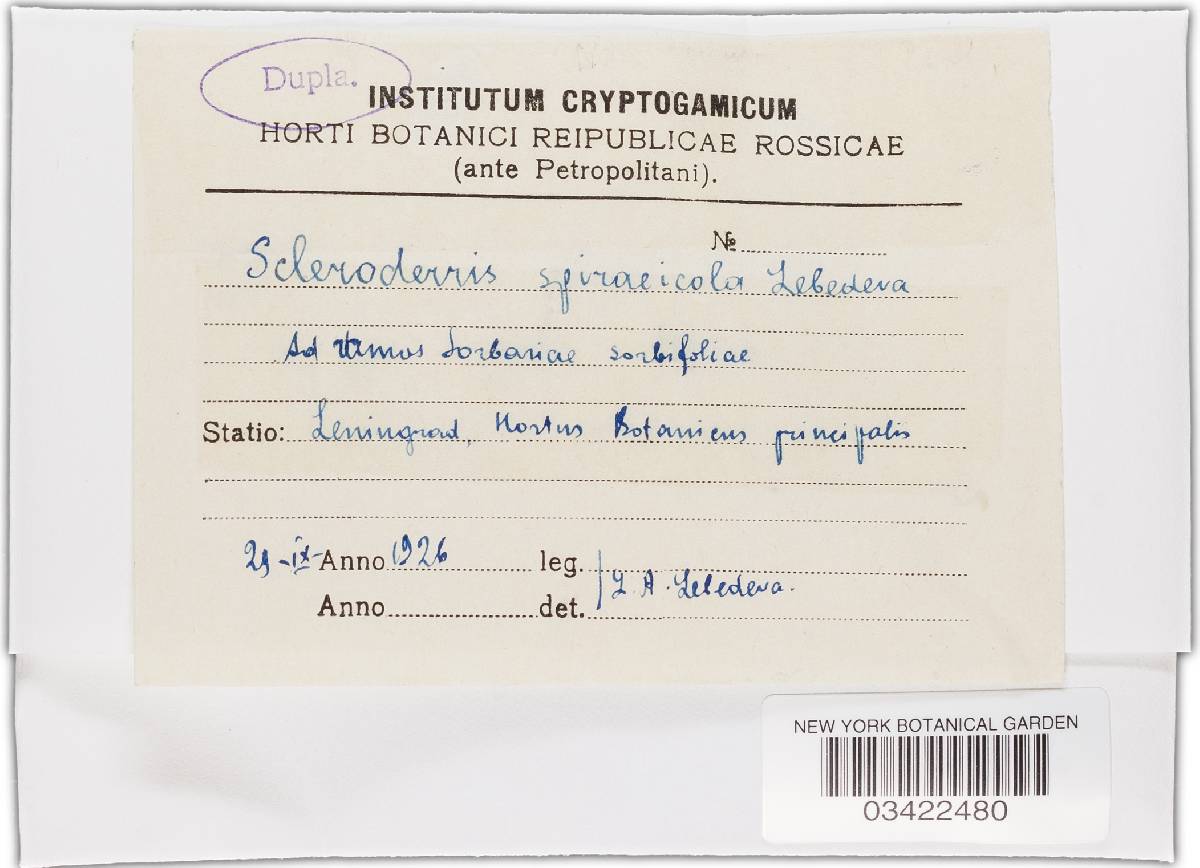 Dupla.
INSTITUTUM CRYPTOGAMICUM
HORTI BOTANICI REIPUBLICAE ROSSICAE
(ante Petropolitani).
№
Scleroderris spiraeicola Lebedeva
Ad ramos Sorbariae sorbifoliae
Statio: Leningrad, Hortus Botanicus principalis
29-IX-Anno 1926 leg.
L. A. Lebedeva.
Anno det.
NEW YORK BOTANICAL GARDEN
03422480